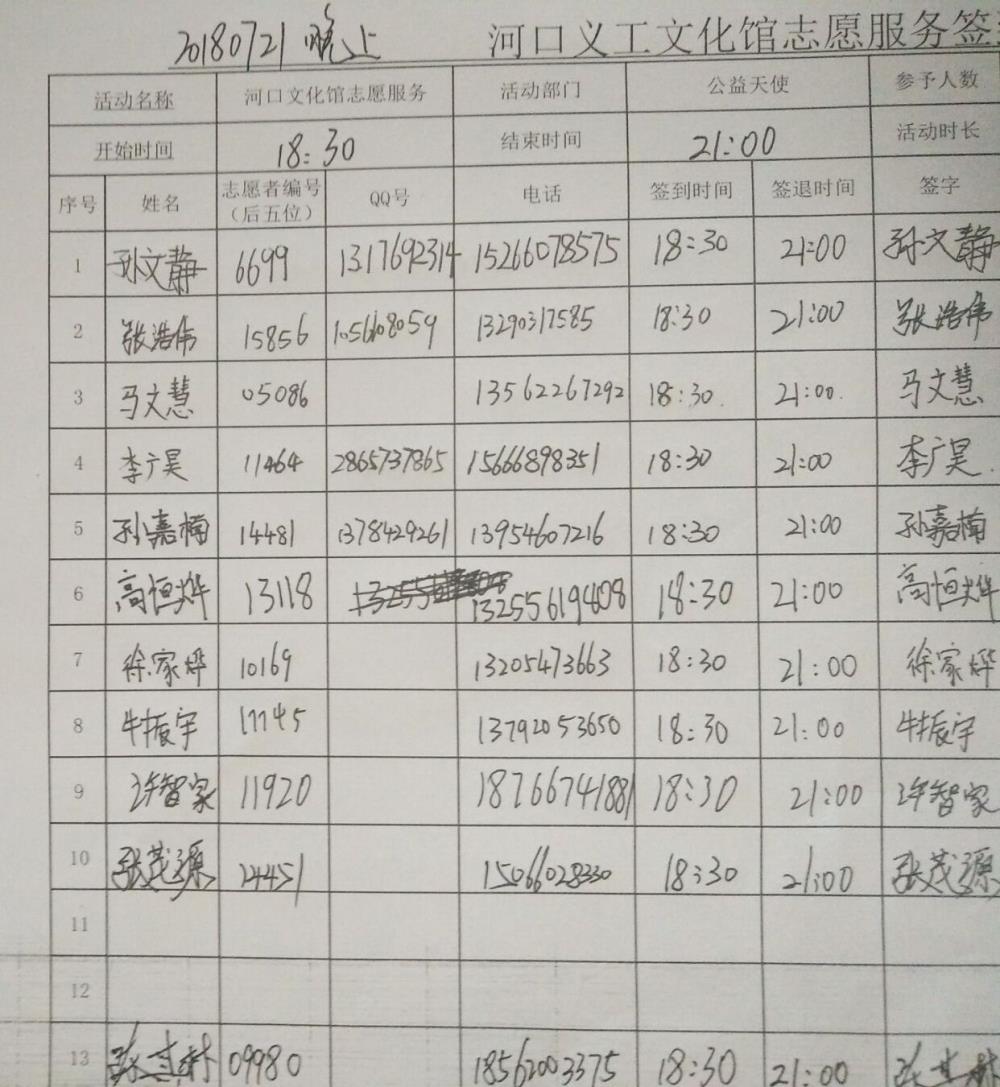 20180721 晚上 河口义工文化馆志愿服务签
活动名称 河口文化馆志愿服务 活动部门 公益天使 参予人数
开始时间 18:30 结束时间 21:00 活动时长
序号 姓名 志愿者编号 QQ号 电话 签到时间 签退时间 签字
（后五位）
1 孙文静 6699 1317692314 15266078575 18:30 21:00 孙文静
2 张浩伟 15856 105608059 13290317585 18:30 21:00 张浩伟
3 马文慧 05086 13562267292 18:30 21:00 马文慧
4 李广昊 11464 2865737865 15666898351 18:30 21:00 李广昊
5 孙嘉楠 14481 1378429261 13954607216 18:30 21:00 孙嘉楠
6 高恒烨 13118 13255619408 18:30 21:00 高恒烨
7 徐家烨 10169 13205473663 18:30 21:00 徐家烨
8 牛振宇 17745 13792053650 18:30 21:00 牛振宇
9 许智家 11920 18766741881 18:30 21:00 许智家
10 张茂源 24451 15066028330 18:30 21:00 张茂源
11
12
13 09980 18562003375 18:30 21:00